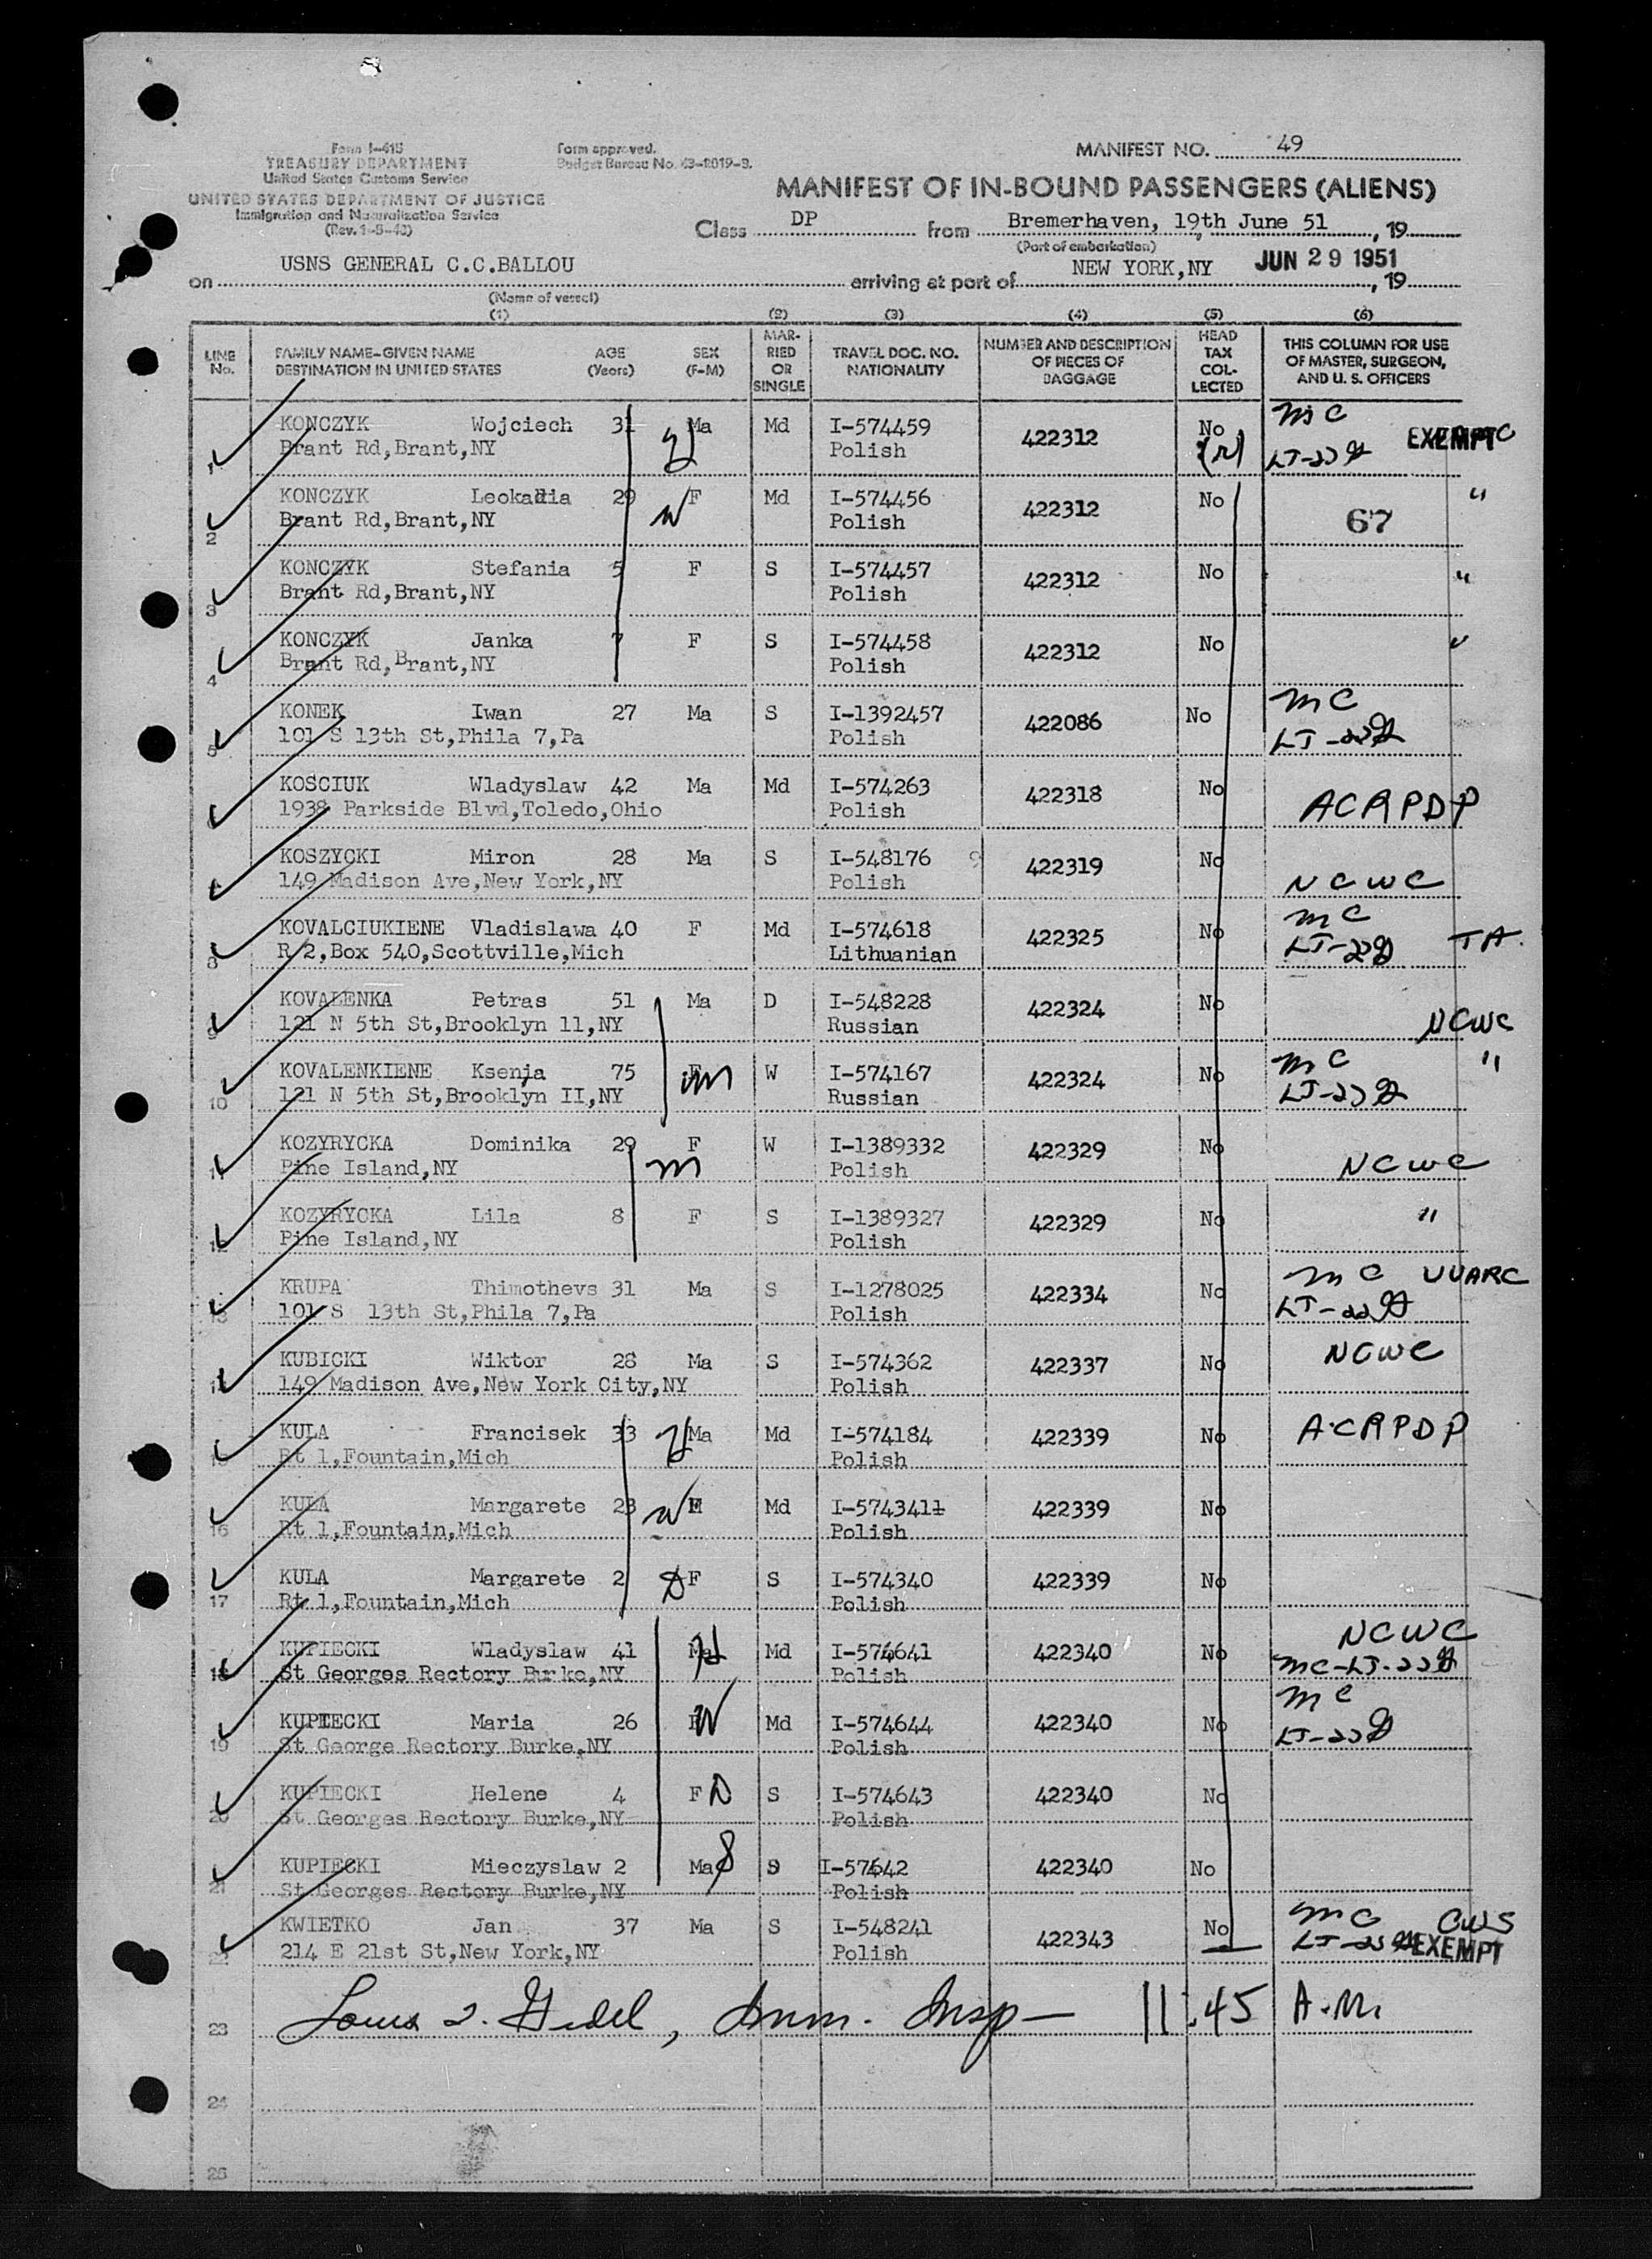 Form I-415
TREASURY DEPARTMENT
United States Customs Service
UNITED STATES DEPARTMENT OF JUSTICE
Immigration and Naturalization Service
(Rev. 1-5-48)
Form approved.
Budget Bureau No. 43-R019-3.
MANIFEST NO. 49
MANIFEST OF IN-BOUND PASSENGERS (ALIENS)
Class DP from Bremerhaven, 19th June 51, 19
(Port of embarkation)
on USNS GENERAL C.C.BALLOU arriving at port of NEW YORK,NY JUN 29 1951, 19
(Name of vessel)
(1) (2) (3) (4) (5) (6)
LINE No. FAMILY NAME-GIVEN NAME DESTINATION IN UNITED STATES AGE (Years) SEX (F-M) MARRIED OR SINGLE TRAVEL DOC. NO. NATIONALITY NUMBER AND DESCRIPTION OF PIECES OF BAGGAGE HEAD TAX COLLECTED THIS COLUMN FOR USE OF MASTER, SURGEON, AND U. S. OFFICERS
KONCZYK Wojciech 31 Ma Md I-574459 422312 No MC
1 Brant Rd,Brant,NY Polish EXEMPT
KONCZYK Leokadia 29 W F Md I-574456 422312 No "
2 Brant Rd,Brant,NY Polish 67
KONCZYK Stefania 5 F S I-574457 422312 No "
3 Brant Rd,Brant,NY Polish
KONCZYK Janka 7 F S I-574458 422312 No "
4 Brant Rd,Brant,NY Polish
KONEK Iwan 27 Ma S I-1392457 422086 No MC
5 101 S 13th St,Phila 7,Pa Polish
KOSCIUK Wladyslaw 42 Ma Md I-574263 422318 No ACRPDP
6 1938 Parkside Blvd,Toledo,Ohio Polish
KOSZYCKI Miron 28 Ma S I-548176 422319 No NCWC
149 Madison Ave,New York,NY Polish
KOVALCIUKIENE Vladislawa 40 F Md I-574618 422325 No MC
8 R 2,Box 540,Scottville,Mich Lithuanian TA.
KOVALENKA Petras 51 Ma D I-548228 422324 No NCWC
9 121 N 5th St,Brooklyn 11,NY Russian
KOVALENKIENE Ksenja 75 F W I-574167 422324 No MC "
10 121 N 5th St,Brooklyn II,NY Russian
KOZYRYCKA Dominika 29 F W I-1389332 422329 No NCWC
11 Pine Island,NY m Polish
KOZYRYCKA Lila 8 F S I-1389327 422329 No "
12 Pine Island,NY Polish
KRUPA Thimothevs 31 Ma S I-1278025 422334 No MC UUARC
13 101 S 13th St,Phila 7,Pa Polish
KUBICKI Wiktor 28 Ma S I-574362 422337 No NCWC
14 149 Madison Ave,New York City,NY Polish
KULA Francisek 33 Ma Md I-574184 422339 No ACRPDP
15 Rt 1,Fountain,Mich Polish
KULA Margarete 23 W F Md I-574341 422339 No
16 Rt 1,Fountain,Mich Polish
KULA Margarete 2 D F S I-574340 422339 No
17 Rt 1,Fountain,Mich Polish
KUPIECKI Wladyslaw 41 Ma H Md I-574641 422340 No NCWC
18 St Georges Rectory Burke,NY Polish
KUPIECKI Maria 26 F W Md I-574644 422340 No MC
19 St George Rectory Burke,NY Polish
KUPIECKI Helene 4 F D S I-574643 422340 No
20 St Georges Rectory Burke,NY Polish
KUPIECKI Mieczyslaw 2 Ma S I-57642 422340 No
21 St Georges Rectory Burke,NY Polish
KWIETKO Jan 37 Ma S I-548241 422343 No MC CWS
22 214 E 21st St,New York,NY Polish EXEMPT
23 Louis Imm. Insp 11:45 A.M.
24
25